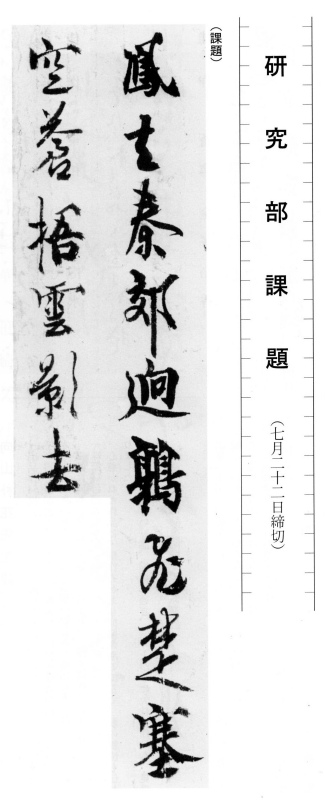 研究部課題（七月二十二日締切）
（課題）
鳳去秦郊迥鶉飛楚塞
空蒼梧雲影去